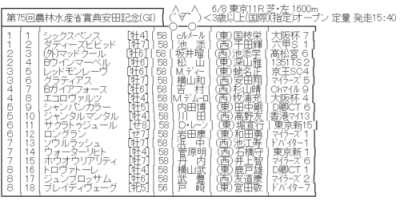 第75回農林水産省賞典安田記念(GⅠ) 6/8 東京11R 芝・左 1600m
<3歳以上(国際)(指定)オープン 定量 発走15:40
1 1 シックスペンス [牡4] 58 ルメール (東)国枝栄 大阪杯7
1 2 ダディーズビビッド [牡7] 58 池添 (西)千田輝 六甲S1
2 3 (外)マッドクール [牡6] 58 坂井瑠 (西)池添学 高松宮6
2 4 Bウインマーベル [牡6] 58 松山 (東)深山雅 1351TS2
3 5 レッドモンレーヴ [牡6] 58 Mディー (東)蛯名正 京王SC4
3 6 ガライア [牡6] 58 横山和 (西)安田翔 マイラーズ
4 7 Bガイアフォース [牡6] 58 吉村 (西)杉山晴 Chマイル9
4 8 エコロヴァルツ [牡4] 58 Mデムーロ (西)牧浦充 大阪杯4
5 9 シャンパンカラー [牡5] 58 内田博 (東)田中剛 D卿CT6
5 10 ジャンタルマンタル [牡4] 58 川田 (西)高野友 香港マイ13
6 11 サクラトゥジュール [セ8] 58 D・レーン (東)堀宣行 東京新15
6 12 ロングラン [セ7] 58 岩田康 (東)和田勇 マイラーズ1
7 13 ソウルラッシュ [牡7] 58 浜中 (西)池江寿 ドバイター1
7 14 ウォーターリヒト [牡4] 58 菅原明 (西)石橋守 東京新1
7 15 ホウオウリアリティ [牡7] 58 丹内 (西)井上智 マイラーズ6
8 16 トロヴァトーレ [牡4] 58 横山武 (東)鹿戸雄 D卿CT1
8 17 ジュンブロッサム [牡6] 58 武豊 (西)友道康 マイラーズ2
8 18 ブレイディヴェーグ [牝5] 56 戸崎 (東)宮田敬 ドバイター7